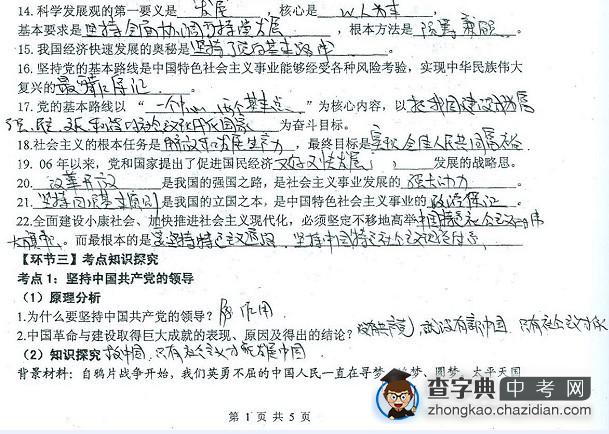 14. 科学发展观的第一要义是 发展 ，核心是 以人为本 ，
基本要求是 坚持全面协调可持续发展 ，根本方法是 统筹兼顾 。
15. 我国经济快速发展的奥秘是 坚持了党的基本路线 。
16. 坚持党的基本路线是中国特色社会主义事业能够经受各种风险考验，实现中华民族伟大
复兴的 最可靠保证 。
17. 党的基本路线以 “ 一个中心，两个基本点 ”为核心内容，以 把我国建设成为富
强、民主、文明、和谐的社会主义现代化国家 为奋斗目标。
18. 社会主义的根本任务是 解放和发展生产力 ，最终目标是 实现全体人民共同富裕 。
19. 06 年以来，党和国家提出了促进国民经济 又好又快发展 发展的战略思。
20. 改革开放 是我国的强国之路，是社会主义事业发展的 强大动力 。
21. 坚持四项基本原则 是我国的立国之本，是中国特色社会主义事业的 政治保证 。
22. 全面建设小康社会、加快推进社会主义现代化，必须坚定不移地高举 中国特色社会主义伟
大旗帜 。而最根本的是 坚持
【环节三】考点知识探究
考点 1：坚持中国共产党的领导
（1）原理分析
1.为什么要坚持中国共产党的领导？ 作用
2.中国革命与建设取得巨大成就的表现、原因及得出的结论？ 没有共产党，就没有新中国，只有社会主义才能
（2）知识探究 救中国，只有社会主义才能发展中国
背景材料：自鸦片战争开始，我们英勇不屈的中国人民一直在寻梦、追梦、圆梦，太平天国
第 1 页 共 5 页
查字典 中考网
zhongkao.chazidian.com